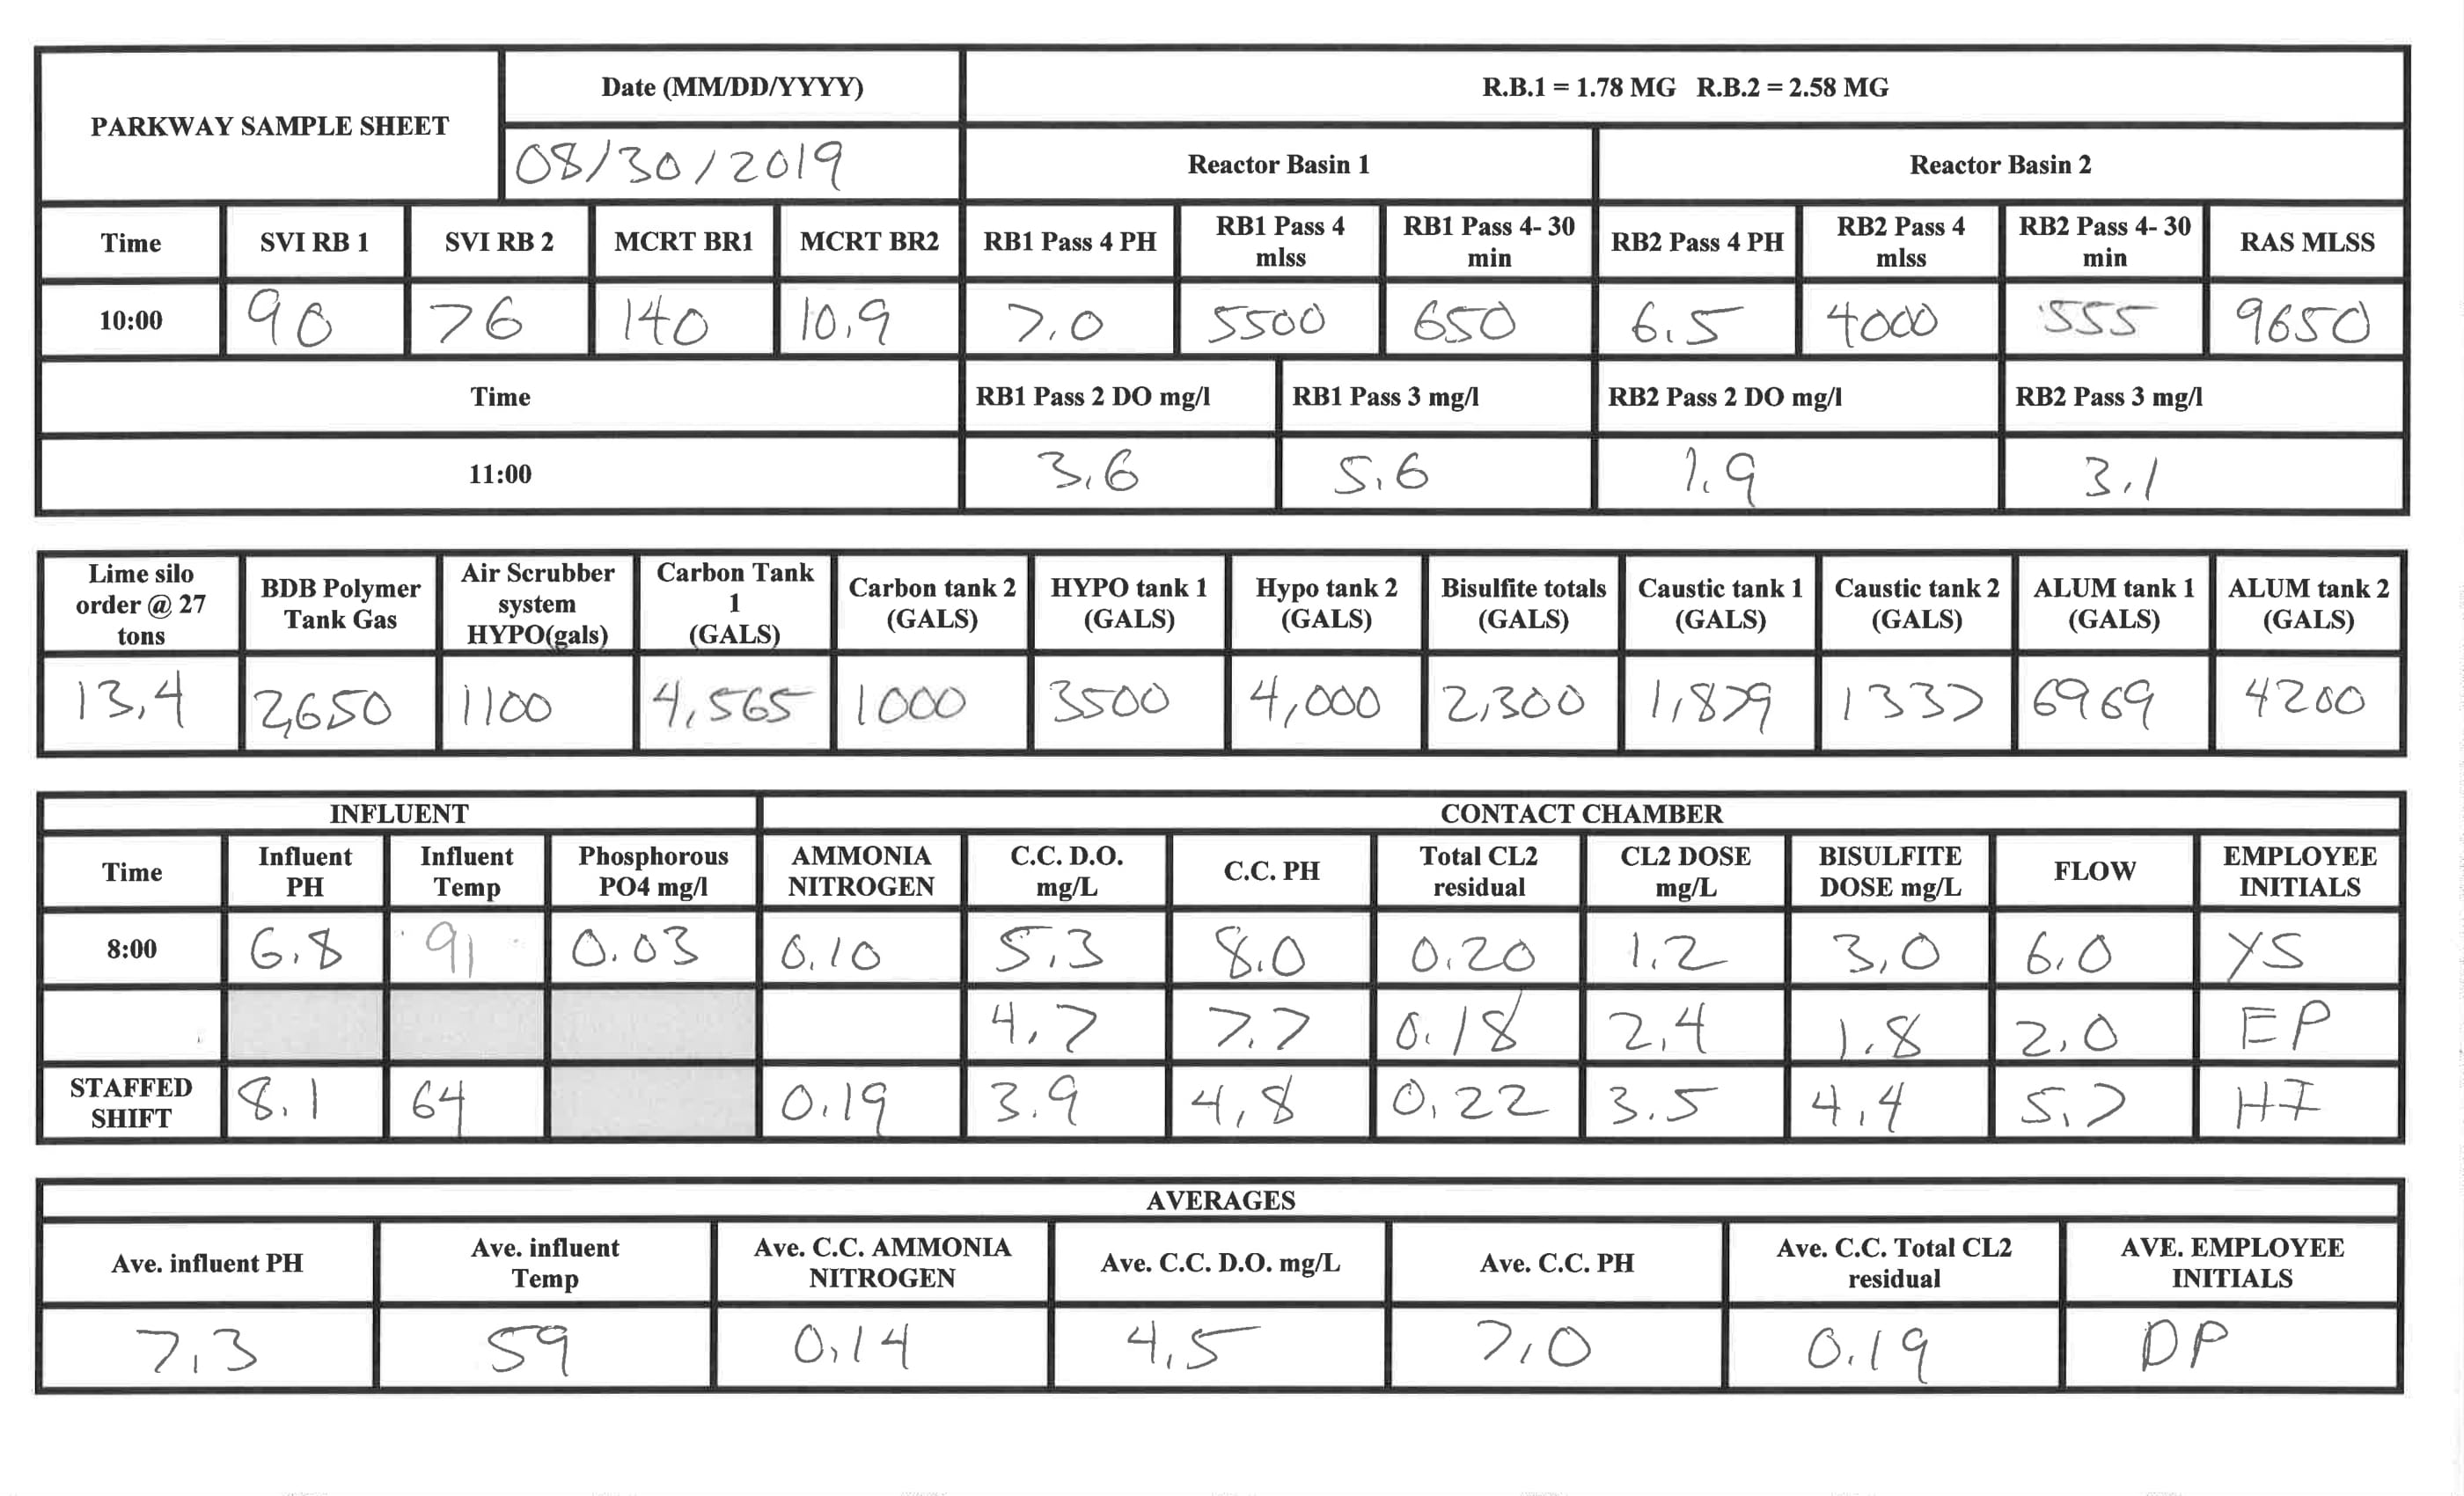 PARKWAY SAMPLE SHEET
Date (MM/DD/YYYY)
08/30/2019
R.B.1 = 1.78 MG R.B.2 = 2.58 MG
Reactor Basin 1 Reactor Basin 2
Time SVI RB 1 SVI RB 2 MCRT BR1 MCRT BR2 RB1 Pass 4 PH RB1 Pass 4 mlss RB1 Pass 4- 30 min RB2 Pass 4 PH RB2 Pass 4 mlss RB2 Pass 4- 30 min RAS MLSS
10:00 90 76 140 10.9 7.0 5500 650 6.5 4000 555 9650
Time RB1 Pass 2 DO mg/l RB1 Pass 3 mg/l RB2 Pass 2 DO mg/l RB2 Pass 3 mg/l
11:00 3.6 5.6 1.9 3.1
Lime silo order @ 27 tons BDB Polymer Tank Gas Air Scrubber system HYPO(gals) Carbon Tank 1 (GALS) Carbon tank 2 (GALS) HYPO tank 1 (GALS) Hypo tank 2 (GALS) Bisulfite totals (GALS) Caustic tank 1 (GALS) Caustic tank 2 (GALS) ALUM tank 1 (GALS) ALUM tank 2 (GALS)
13.4 2,650 1100 4,565 1000 3500 4,000 2,300 1,879 1337 6969 4200
INFLUENT CONTACT CHAMBER
Time Influent PH Influent Temp Phosphorous PO4 mg/l AMMONIA NITROGEN C.C. D.O. mg/L C.C. PH Total CL2 residual CL2 DOSE mg/L BISULFITE DOSE mg/L FLOW EMPLOYEE INITIALS
8:00 6.8 91 0.03 0.10 5.3 8.0 0.20 1.2 3.0 6.0 YS
4.7 7.7 0.18 2.4 1.8 2.0 EP
STAFFED SHIFT 8.1 64 0.19 3.9 4.8 0.22 3.5 4.4 5.7
AVERAGES
Ave. influent PH Ave. influent Temp Ave. C.C. AMMONIA NITROGEN Ave. C.C. D.O. mg/L Ave. C.C. PH Ave. C.C. Total CL2 residual AVE. EMPLOYEE INITIALS
7.3 59 0.14 4.5 7.0 0.19 DP